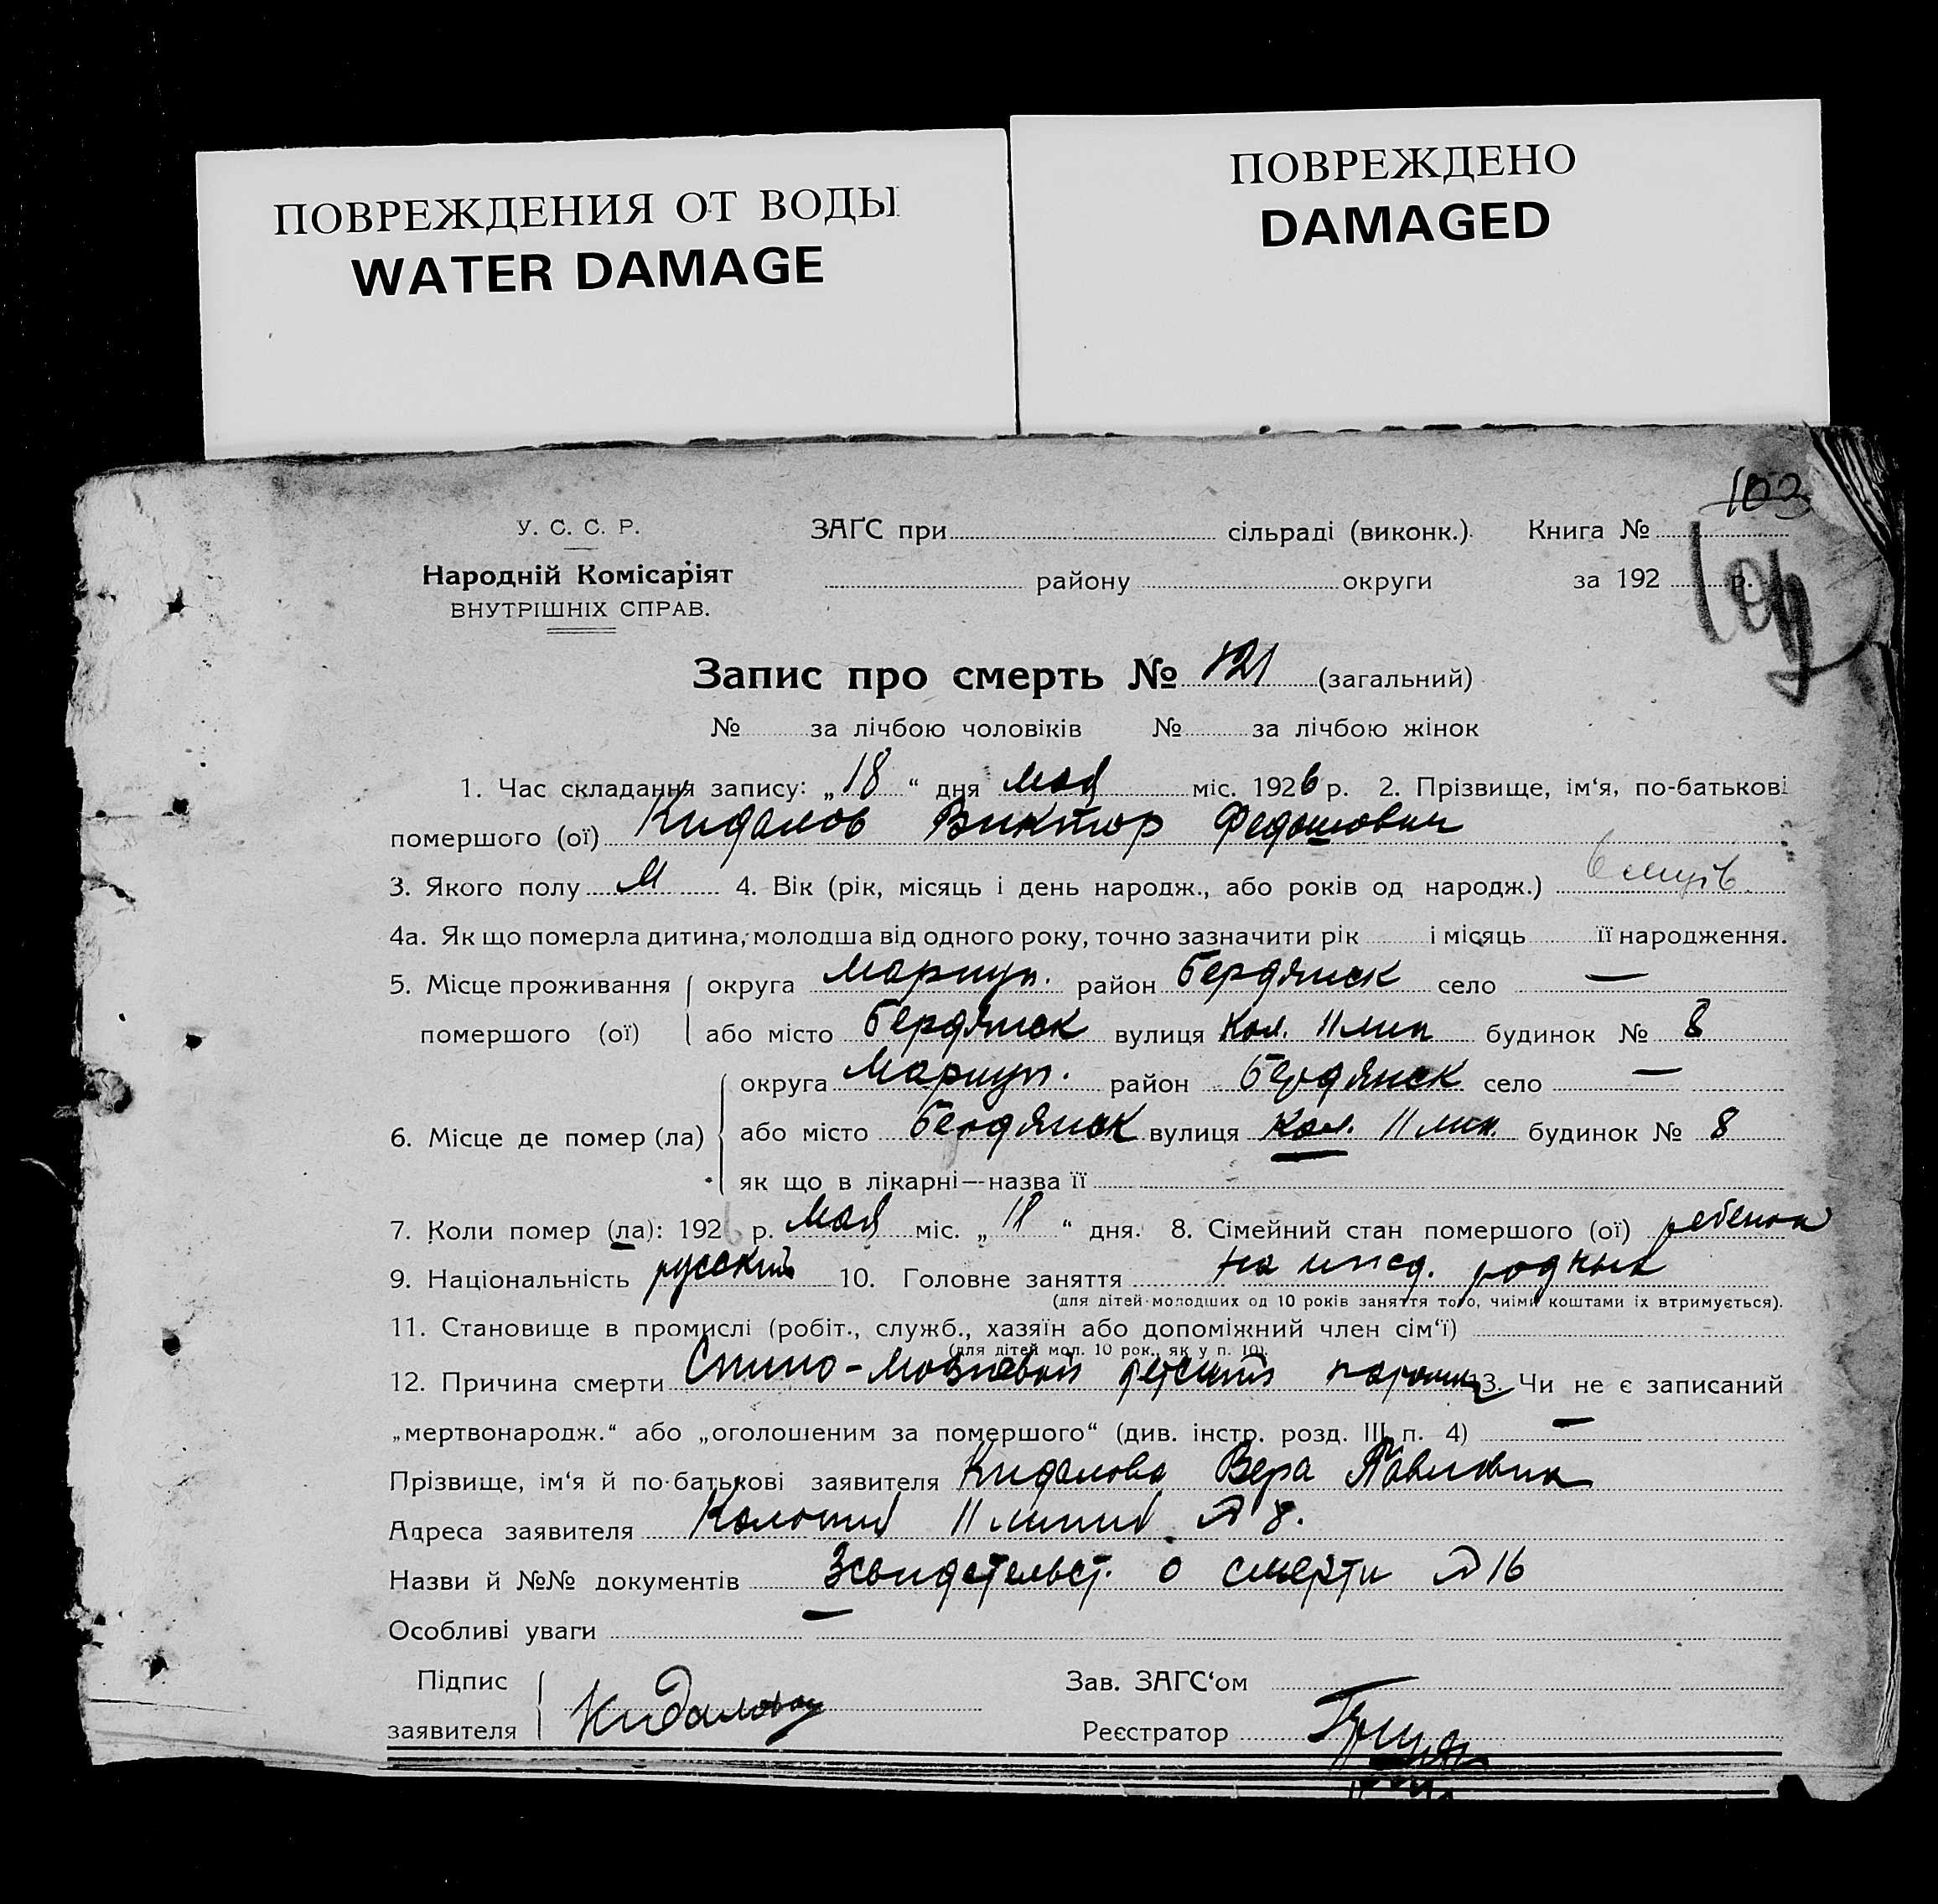 ПОВРЕЖДЕНИЯ ОТ ВОДЫ
WATER DAMAGE
ПОВРЕЖДЕНО
DAMAGED
103
У. С. С. Р. ЗАҐС при сільраді (виконк.). Книга №
Народній Комісаріят району округи за 192 р.
ВНУТРІШНІХ СПРАВ.
Запис про смерть № 121 (загальний)
№ за лічбою чоловіків № за лічбою жінок
1. Час складання запису: „18“ дня мая міс. 1926 р. 2. Прізвище, ім‘я, по-батькові
помершого (ої) Кидалов Виктор
3. Якого полу М 4. Вік (рік, місяць і день народж., або років од народж.) 6
4а. Як що померла дитина, молодша від одного року, точно зазначити рік і місяць її народження.
5. Місце проживання округа Мариуп. район Бердянск село —
помершого (ої) або місто Бердянск вулиця Кол. II лин будинок № 8
округа Мариуп. район Бердянск село —
6. Місце де помер (ла) або місто Бердянск вулиця Кол. II лин. будинок № 8
як що в лікарні—назва її
7. Коли помер (ла): 1926 р. мая міс. „18“ дня. 8. Сімейний стан помершого (ої) ребенок
9. Національність русский 10. Головне заняття на ижд. родных
(для дітей молодших од 10 років заняття того, чиїми коштами їх втримується).
11. Становище в промислі (робіт., служб., хазяїн або допоміжний член сім‘ї)
(для дітей мол. 10 рок., як у п. 10).
12. Причина смерти Спино-мозговой детский паралич 13. Чи не є записаний
„мертвонародж.“ або „оголошеним за помершого“ (див. інстр. розд. III п. 4) —
Прізвище, ім‘я й по-батькові заявителя Кидалова Вера Павловна
Адреса заявителя Колония II линия № 8.
Назви й №№ документів свидетельст. о смерти № 16
Особливі уваги —
Підпис Зав. ЗАГС‘ом
заявителя Кидалова Реєстратор